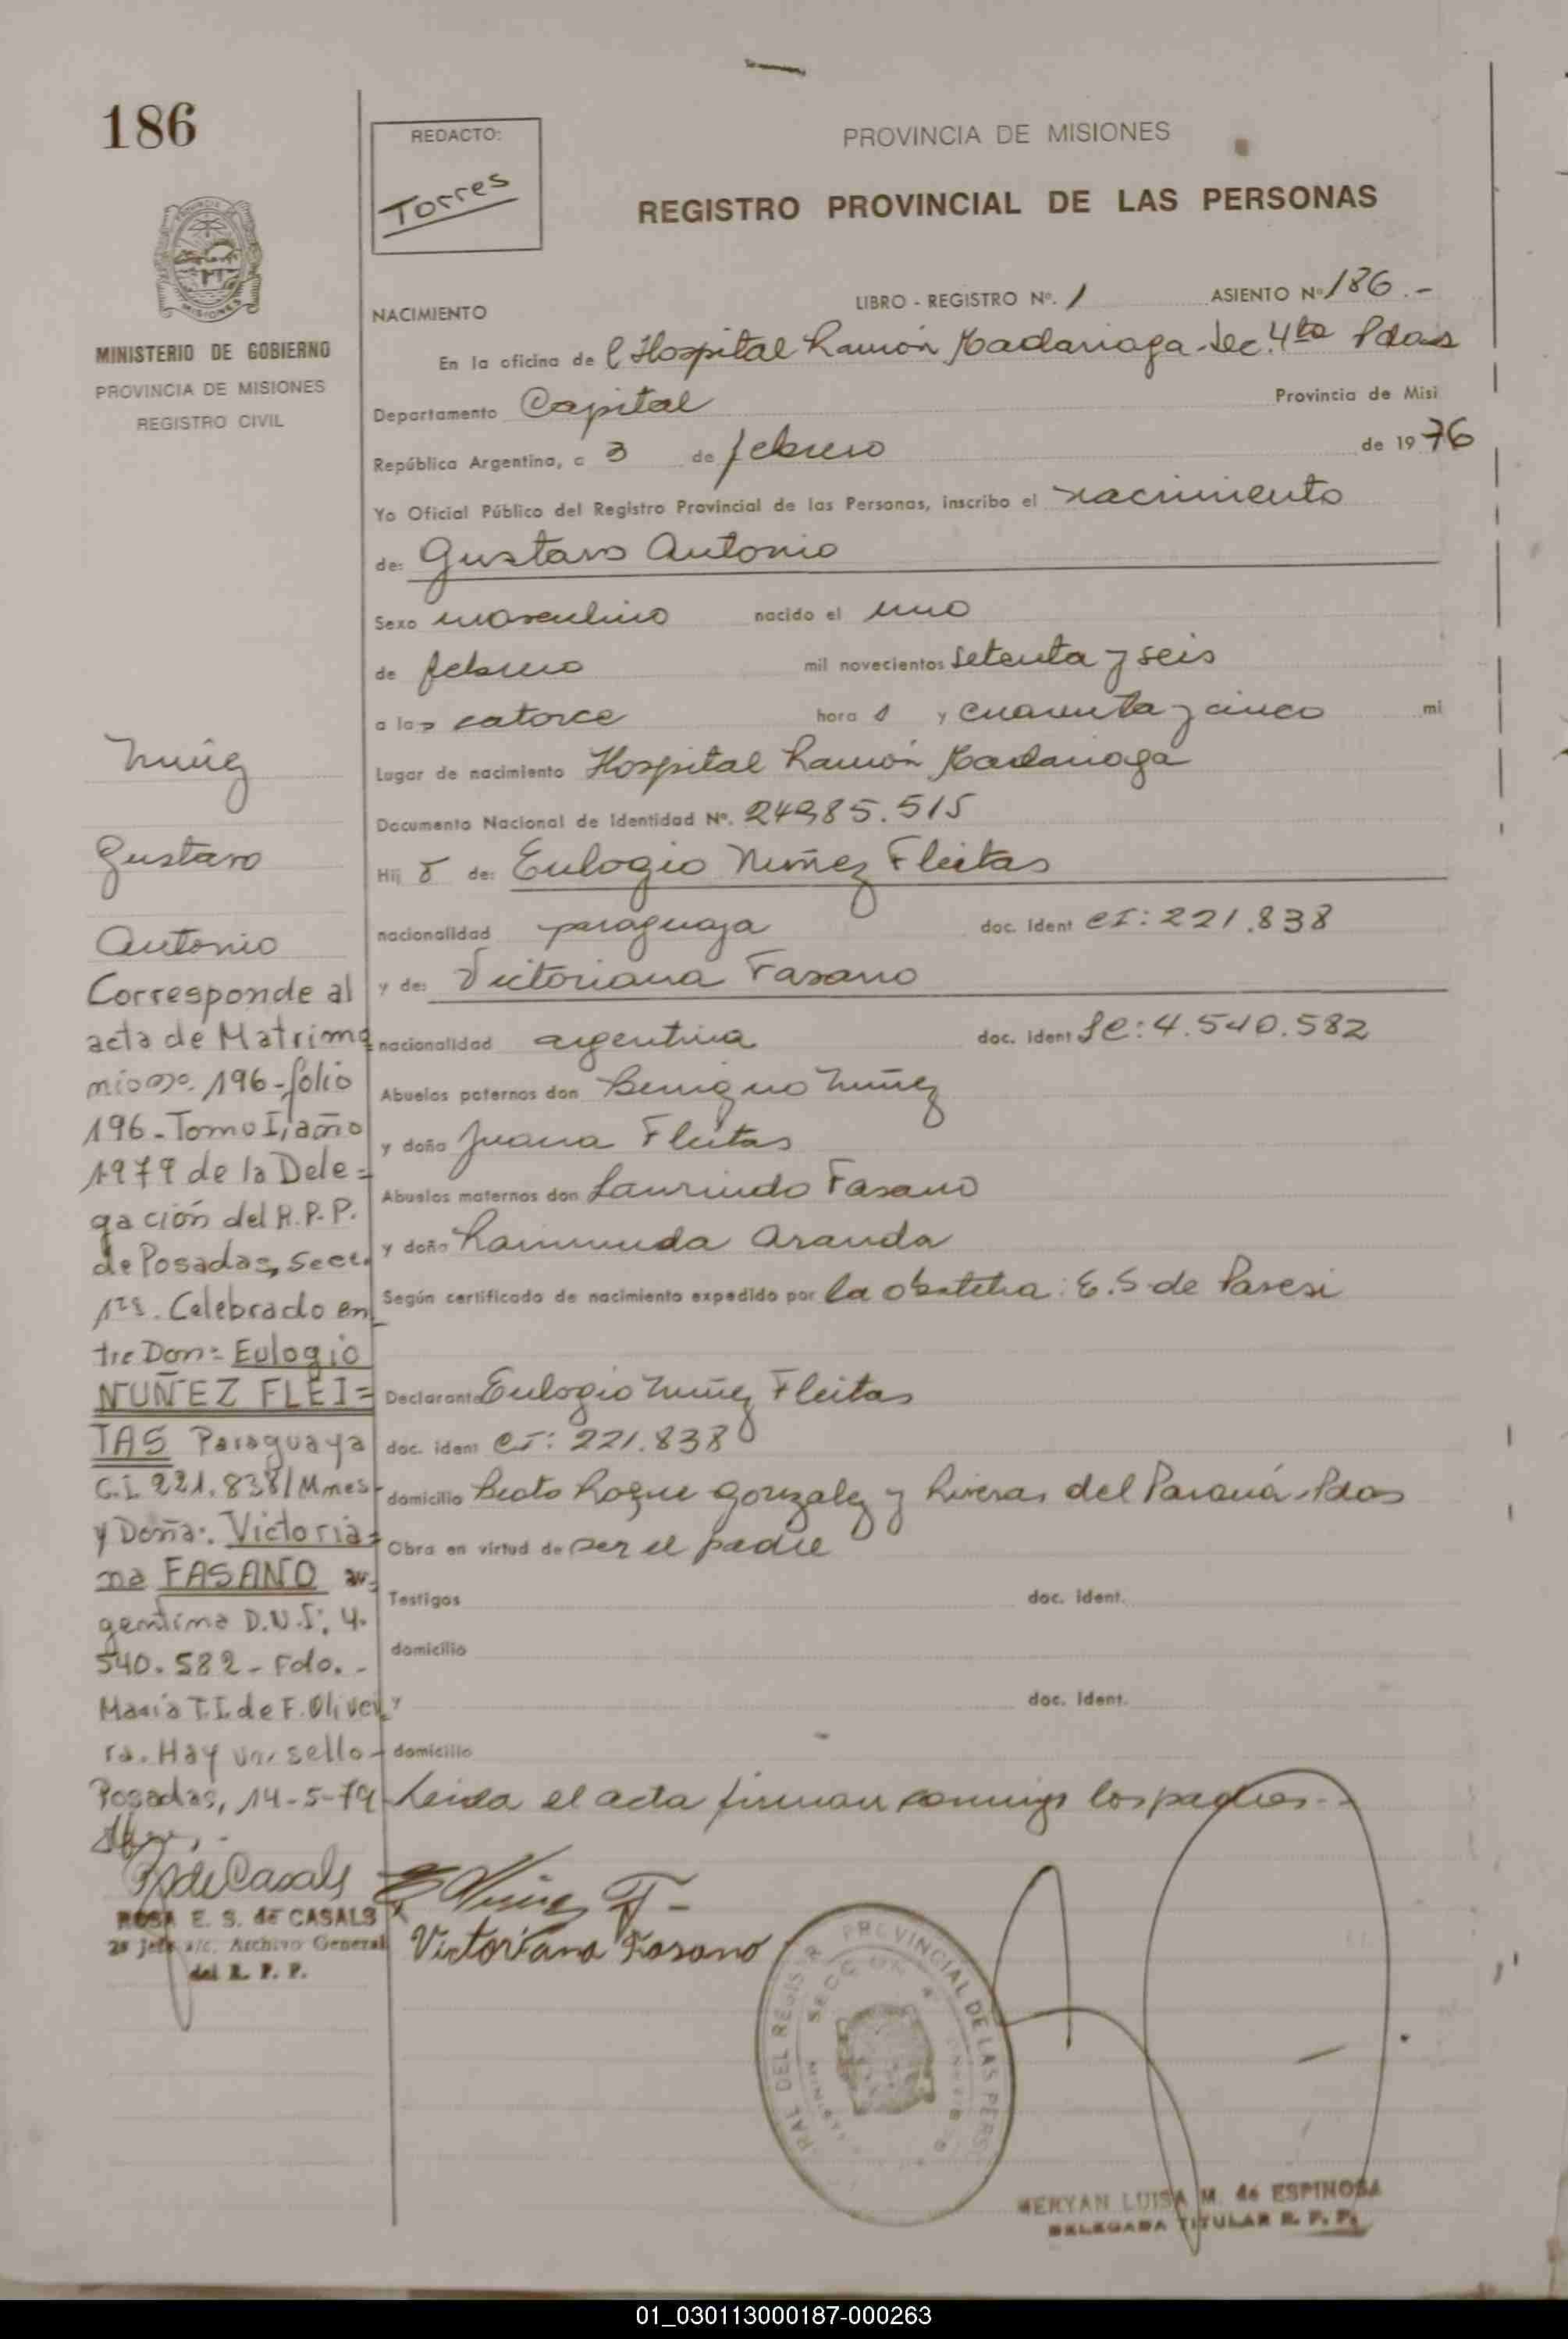 186
REDACTO:
Torres
PROVINCIA DE MISIONES
REGISTRO PROVINCIAL DE LAS PERSONAS
MISIONES
MINISTERIO DE GOBIERNO
PROVINCIA DE MISIONES
REGISTRO CIVIL
NACIMIENTO
LIBRO - REGISTRO Nº. 1 ASIENTO Nº 186.-
En la oficina de l Hospital Ramón Madariaga-Sec. 4ta Pdas
Departamento Capital Provincia de Misi
República Argentina, a 3 de febrero de 1976
Yo Oficial Público del Registro Provincial de las Personas, inscribo el nacimiento
de: Gustavo Antonio
Sexo masculino nacido el uno
de febrero mil novecientos setenta y seis
a las catorce hora s y cuarenta y cinco mi
Lugar de nacimiento Hospital Ramón Madariaga
Documento Nacional de Identidad Nº. 24.985.515
Hij o de: Eulogio Nuñez Fleitas
nacionalidad paraguaya doc. ident CI: 221.838
y de: Victoriana Fasano
nacionalidad argentina doc. ident LC: 4.540.582
Abuelos paternos don Benigno Nuñez
y doña Juana Fleitas
Abuelos maternos don Laurindo Fasano
y doña Raimunda Aranda
Según certificado de nacimiento expedido por la obstetra: E.S de Paresi
Declarante Eulogio Nuñez Fleitas
doc. ident CI: 221.838
domicilio Beato Roque Gonzalez y Riveras del Paraná-Pdas
Obra en virtud de ser el padre
Testigos doc. ident.
domicilio
y doc. ident.
domicilio
Leida el acta firman conmigo los padres.-
E Nuñez F-
Victoriana Fasano
Nuñez
Gustavo
Antonio
Corresponde al
acta de Matrimo
nio nº. 196-folio
196-Tomo I, año
1979 de la Dele=
gación del R.P.P.
de Posadas, Secc.
1ra. Celebrado en
tre Don: Eulogio
NUÑEZ FLEI=
TAS Paraguaya
C.I. 221.838/Mnes-
y Doña: Victoria=
na FASANO ar-
gentina D.N.I: 4.
540.582-Fdo.-
María T.I. de F. Olivei
ra. Hay un sello-
Posadas, 14-5-79
R S de Casals
ROSA E. S. de CASALS
2º Jefe a/c. Archivo General
del R. P. P.
RAL DEL REGISTR PROVINCIAL DE LAS PERS
MERYAN LUISA M. de ESPINOSA
DELEGADA TITULAR R. P. P.
01_030113000187-000263